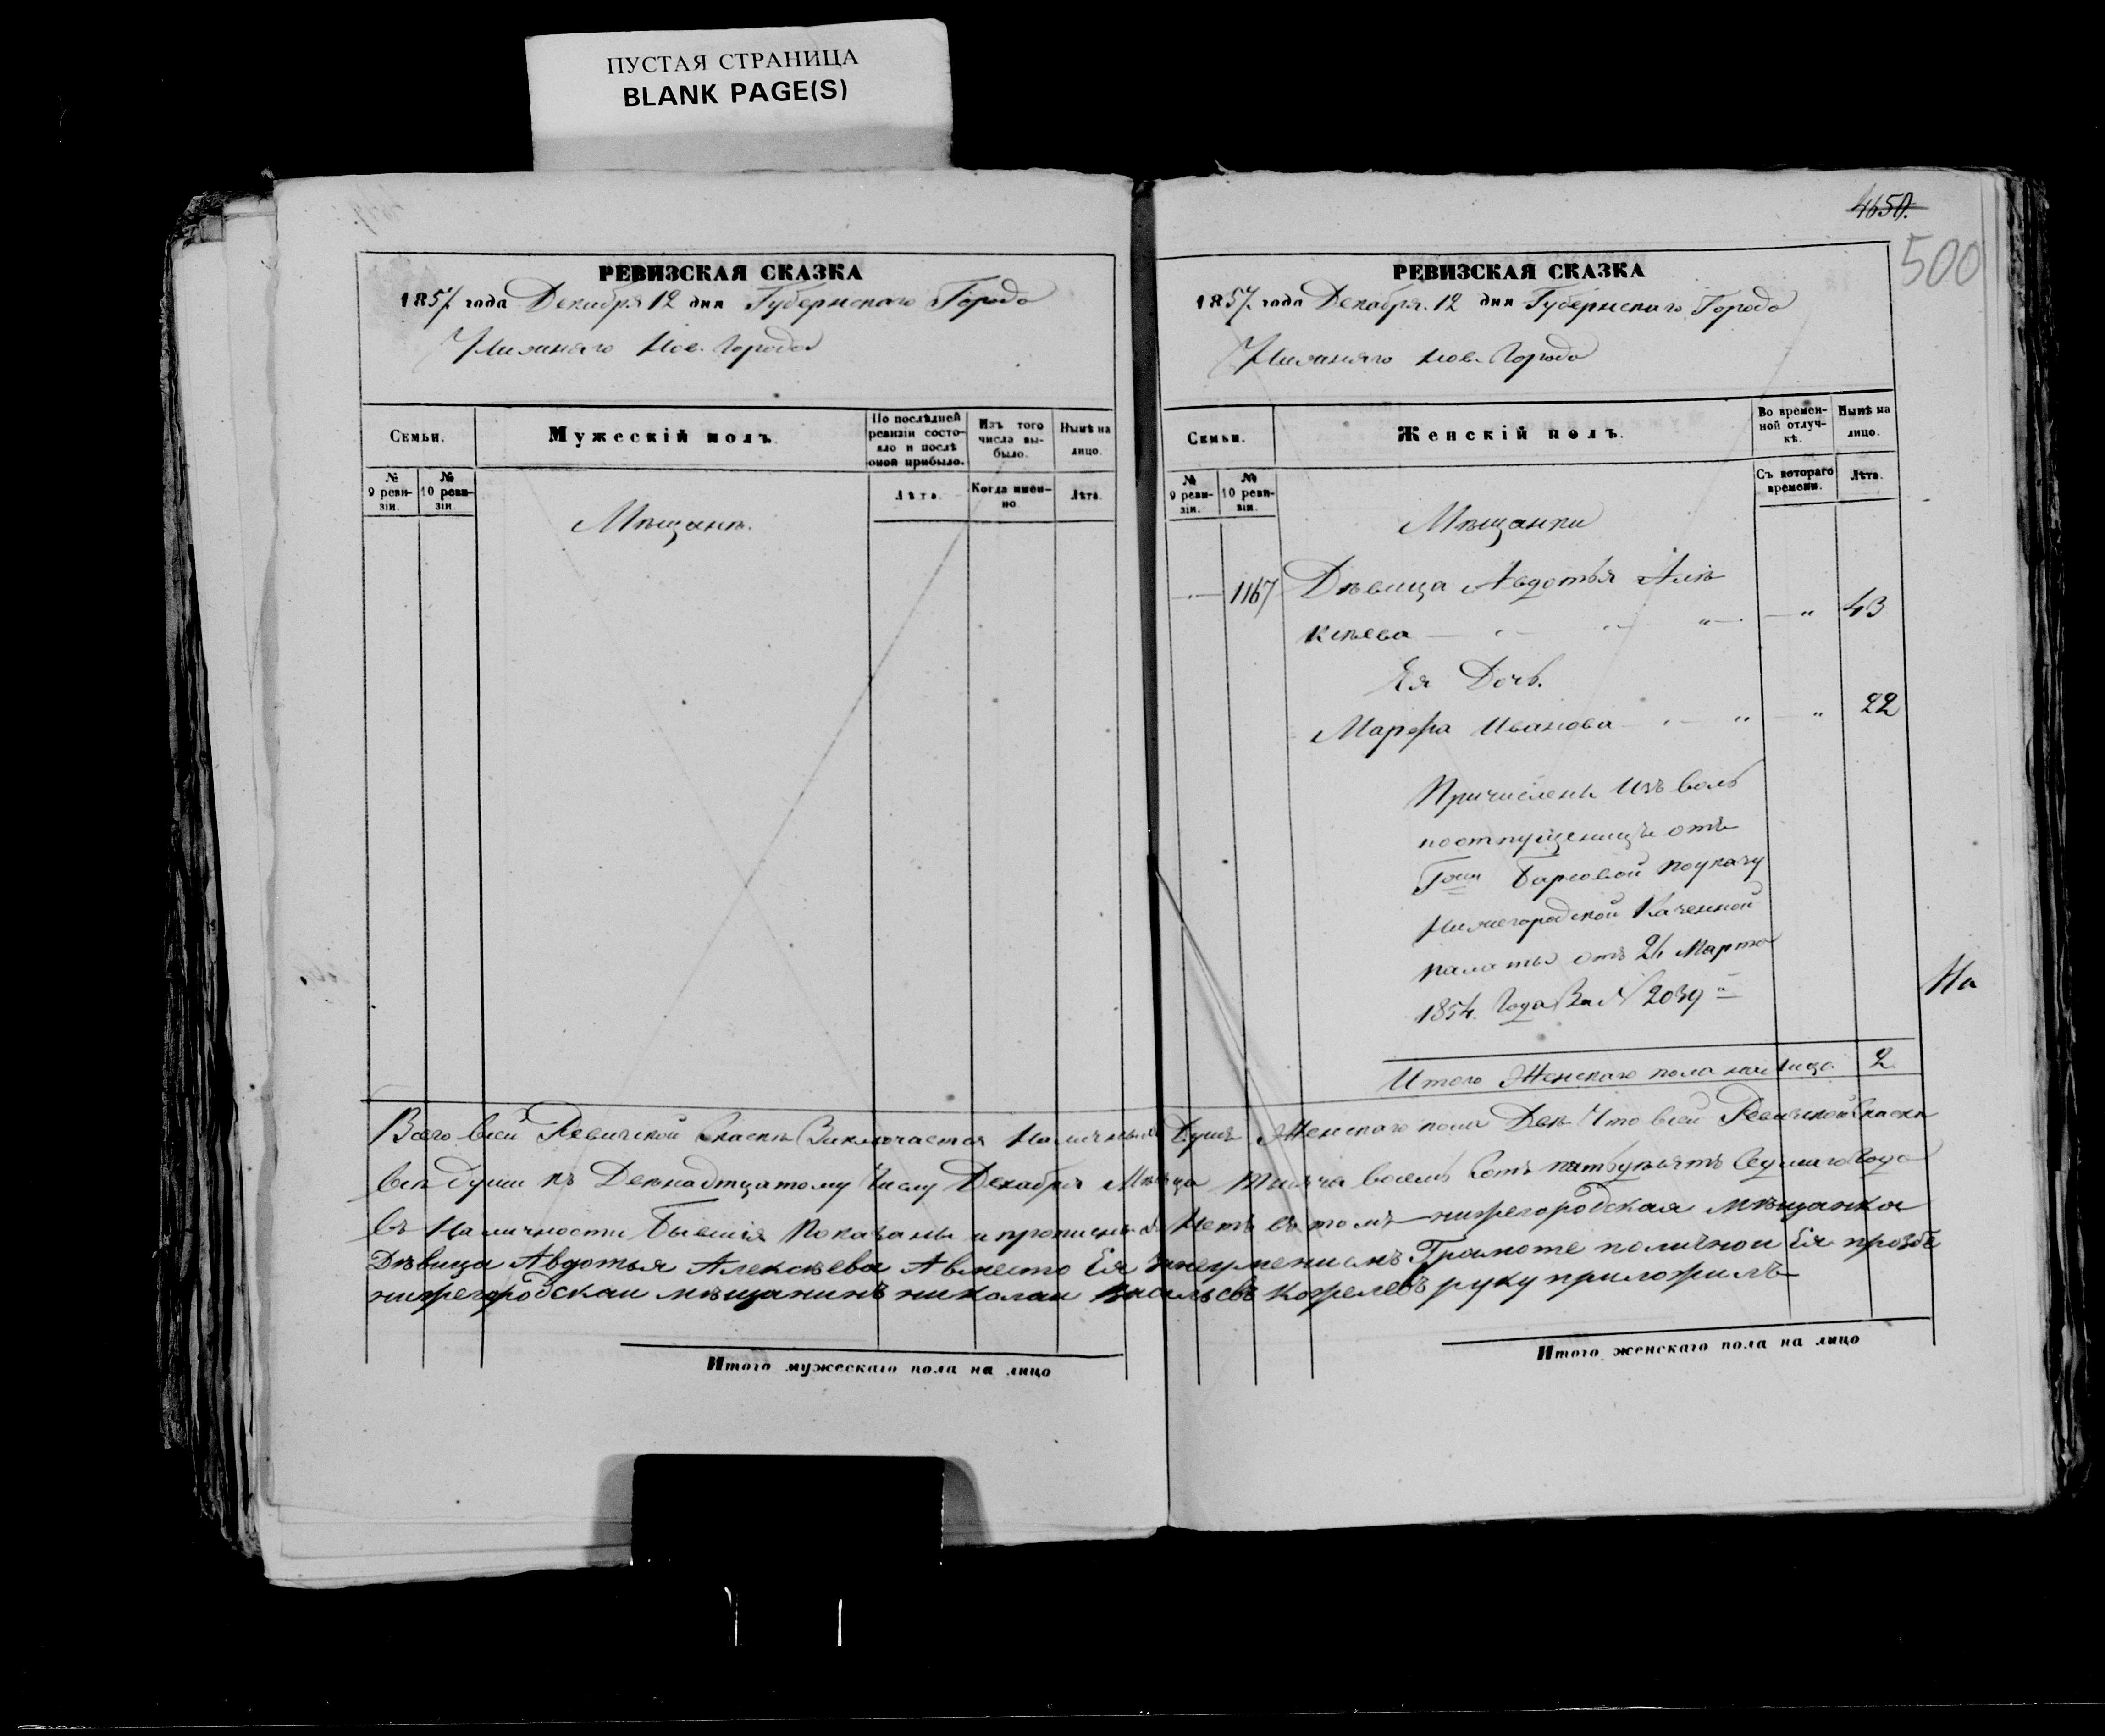 ПУСТАЯ СТРАНИЦА
BLANK PAGE(S)
РЕВИЗСКАЯ СКАЗКА
1857 года Декабря 12 дня Губернскаго Города
Нижняго Нов. Города
Семьи.
Мужескій полъ.
По послѣдней ревизіи состояло и послѣ оной прибыло.
Изъ того числа выбыло.
Нынѣ на лицо.
№ 9 ревизіи.
№ 10 ревизіи.
Лѣта.
Когда именно.
Лѣта.
Мѣщанъ.
4650.
500
РЕВИЗСКАЯ СКАЗКА
1857 года Декабря 12 дня Губернскаго Города
Нижняго Нов. Города
Семьи.
Женскій полъ.
Во временной отлучкѣ.
Нынѣ на лицо.
№ 9 ревизіи.
№ 10 ревизіи.
Съ котораго времени.
Лѣта.
Мѣщанки
1167 Дѣвица Авдотья Але
ксѣева 43
Ея Дочь.
Марфа Иванова 22
Причислены изъ воль
ноотпущеницъ отъ
Гжи поуказу
Нижегородской Казенной
палаты отъ Марта
1854. Года За № 2039
На
Итого Женскаго пола налицо. 2
Всего всей Ревизкой Скаскѣ Заключается Наличныхъ Душъ Женскаго пола Двѣ Что всей Ревизской Скаски
всѣ души къ Двѣнадцатому Числу Декабря Мѣсяца тысяча восемь сотъ пятьдесятъ седмаго Года
въ Наличности Бывшія Показаны и прописныхъ Нетъ въ томъ нижегородская мѣщанка
Дѣвица Авдотья Алексѣева Авместо Ея Грамоте поличнои Ея прозбѣ
нижегородскаи мѣщанинъ николаи васильевъ руку приложилъ
Итого мужескаго пола на лицо
Итого женскаго пола на лицо